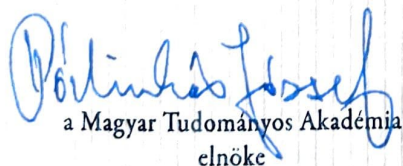 Pálinkás József
a Magyar Tudományos Akadémia
elnöke